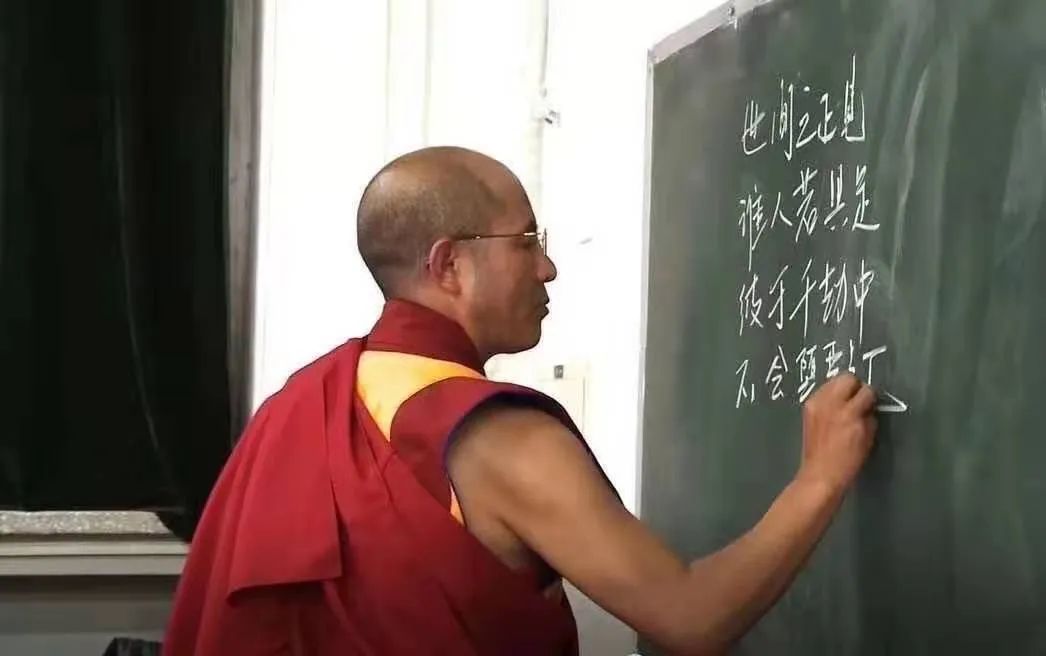 世间之正见
谁人若具足
彼于千劫中
不会堕恶